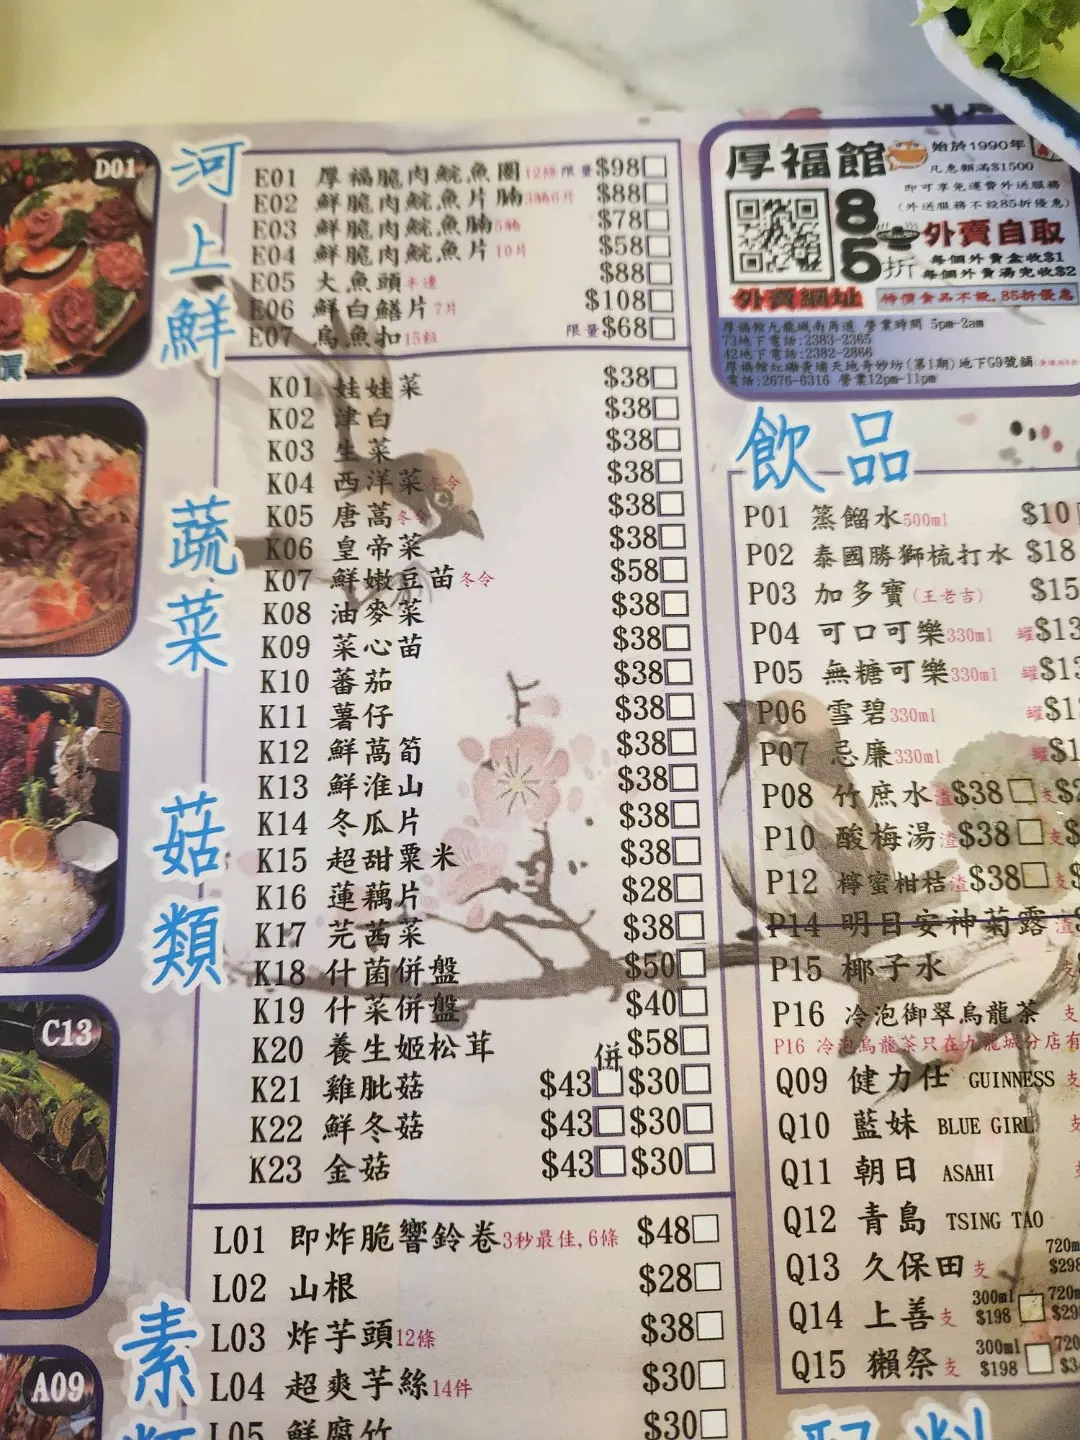 D01
河上鮮
E01 厚福脆肉鯇魚圈12條 限量 $98
E02 鮮脆肉鯇魚片腩3腩6片 $88
E03 鮮脆肉鯇魚腩5腩 $78
E04 鮮脆肉鯇魚片10片 $58
E05 大魚頭半邊 $88
E06 鮮白鱔片7片 $108
E07 烏魚扣15粒 限量$68
蔬菜菇類
K01 娃娃菜 $38
K02 津白 $38
K03 生菜 $38
K04 西洋菜冬令 $38
K05 唐蒿冬令 $38
K06 皇帝菜 $38
K07 鮮嫩豆苗冬令 $58
K08 油麥菜 $38
K09 菜心苗 $38
K10 蕃茄 $38
K11 薯仔 $38
K12 鮮萵筍 $38
K13 鮮淮山 $38
K14 冬瓜片 $38
K15 超甜粟米 $38
K16 蓮藕片 $28
K17 芫茜菜 $38
K18 什菌併盤 $50
K19 什菜併盤 $40
K20 養生姬松茸 $58
併
K21 雞肶菇 $43 $30
K22 鮮冬菇 $43 $30
K23 金菇 $43 $30
C13
A09
素
L01 即炸脆響鈴卷3秒最佳,6條 $48
L02 山根 $28
L03 炸芋頭12條 $38
L04 超爽芋絲14件 $30
L05 鮮腐竹 $30
厚福館
始於1990年
凡惠顧滿$1500
即可享免運費外送服務
(外送服務不設85折優惠)
85折
外賣自取
每個外賣盒收$1
每個外賣湯兜收$2
外賣網址
特價食品不設,85折優惠
厚福館九龍城南角道 營業時間 5pm-2am
73地下電話:2383-2365
42地下電話:2382-2866
厚福館紅磡黃埔天地奇妙坊(第1期)地下G9號舖
電話:2676-6316 營業12pm-11pm
飲品
P01 蒸餾水500ml $10
P02 泰國勝獅梳打水 $18
P03 加多寶(王老吉) $15
P04 可口可樂330ml 罐$13
P05 無糖可樂330ml 罐$13
P06 雪碧330ml 罐$1
P07 忌廉330ml 罐$1
P08 竹庶水渣$38 支$
P10 酸梅湯渣$38 支$
P12 檸蜜柑桔渣$38 支$
P14 明目安神菊露渣
P15 椰子水 支
P16 冷泡御翠烏龍茶 支
P16 冷泡烏龍茶只在九龍城分店有
Q09 健力仕 GUINNESS 支
Q10 藍妹 BLUE GIRL 支
Q11 朝日 ASAHI
Q12 青島 TSING TAO
Q13 久保田支 720m $298
Q14 上善支 300ml $198 720m $29
Q15 獺祭支 300ml $198 720 $3
配料